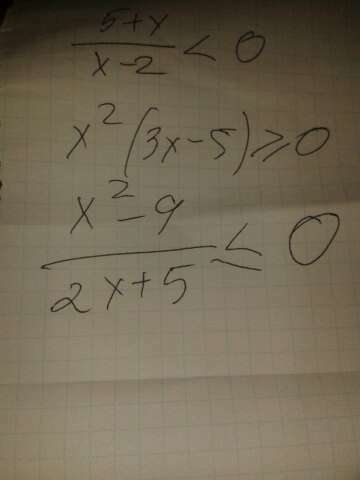 5+x
x-2 < 0
x²(3x-5) ⩾ 0
x²-9
2x+5 ≤ 0